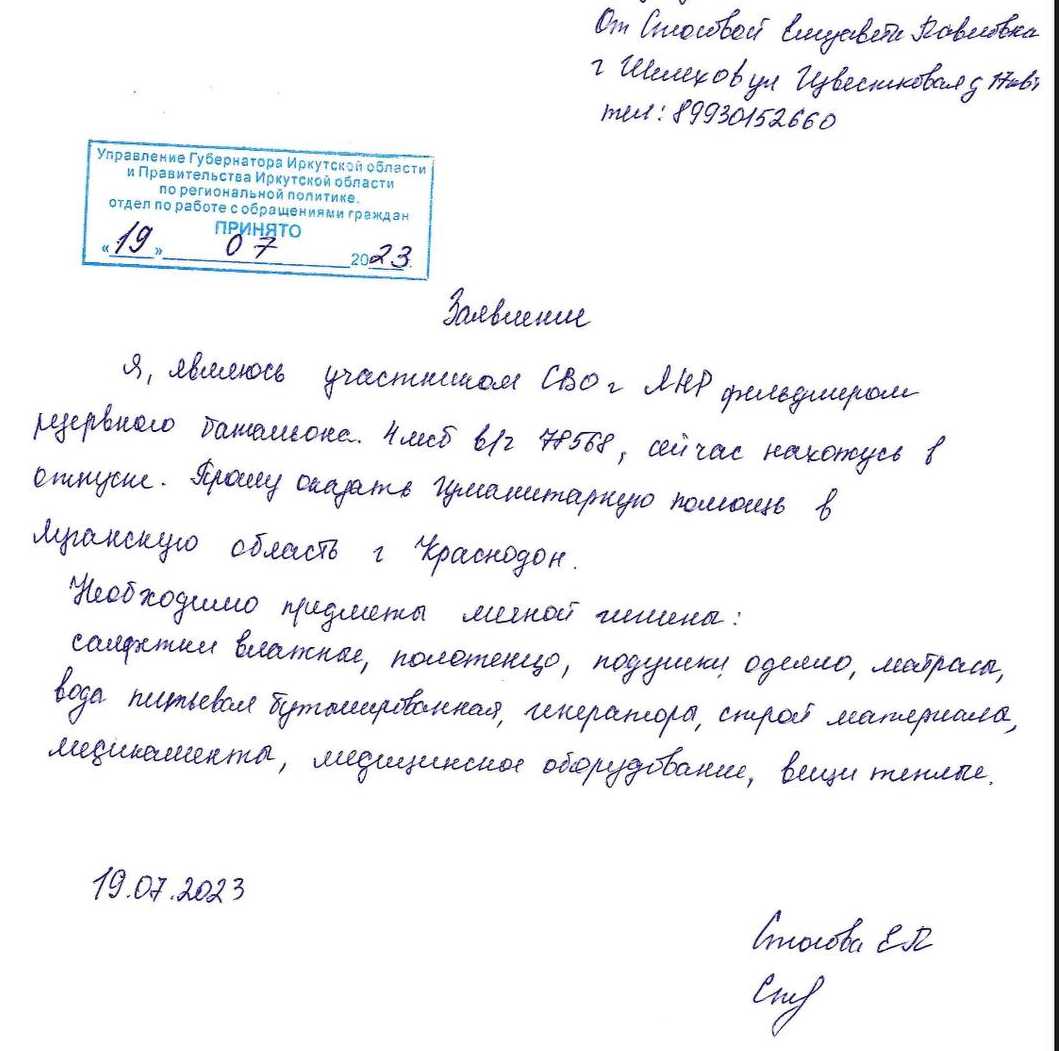 От Стосовой Елизавета Павловка
г Шелехов ул Известковая д 17 кв1
тел: 89930152660
Управление Губернатора Иркутской области
и Правительства Иркутской области
по региональной политике.
отдел по работе с обращениями граждан
ПРИНЯТО
«19» 07 2023.
Заявление
Я, являюсь участником СВО г ЛНР фельдшером
резервного батальона. 4 мсб в/г 78568, сейчас нахожусь в
отпуске. Прошу оказать гуманитарную помощь в
Луганскую область г Краснодон.
Необходимо предметы личной гигиены:
салфетки влажные, полотенцо, подушки, одеяло, матрасы,
вода питьевая бутылированная, генератора, строй материала,
медикаменты, медицинское оборудование, вещи теплые.
19.07.2023
Стосова ЕП